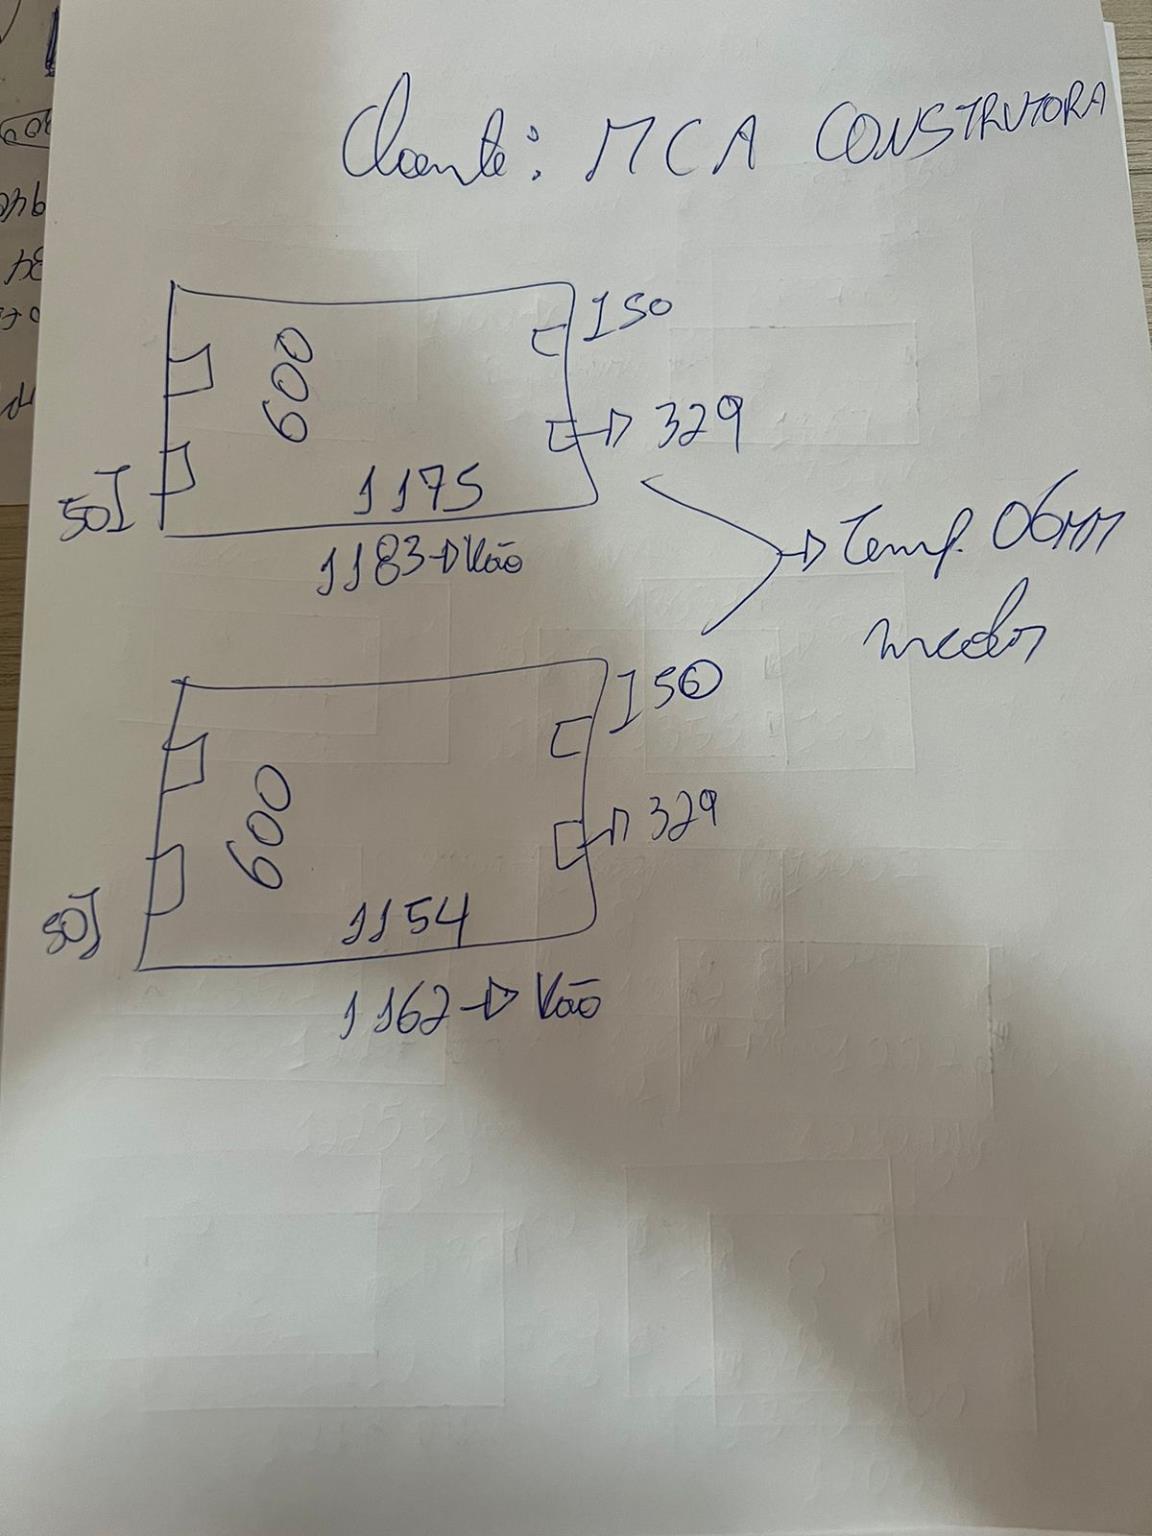 Cliente: MCA CONSTRUTORA
I 50
600
329
50 I
1175
1183 → Vão
Temp. 06MM
incolor
I 50
600
329
50 I
1154
1162 → Vão